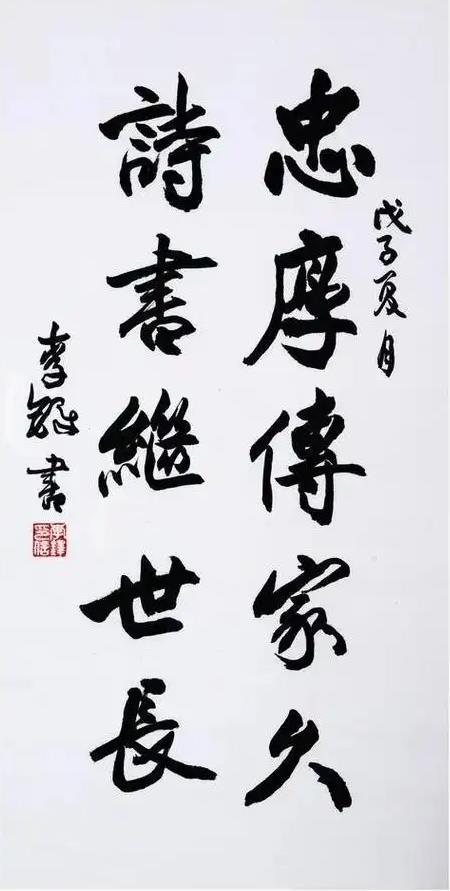 戊子夏月
忠厚傳家久
詩書繼世長
李鐸書
李鐸印信